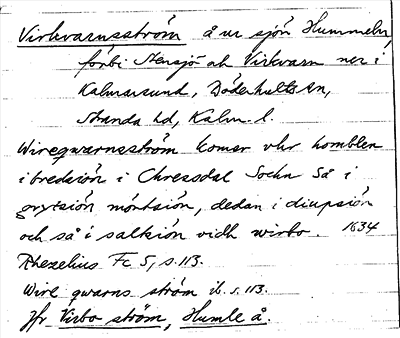 Virkvarnsström å ur sjön Hummeln,
förbi Stensjö och Virkvarn ner i
Kalmarsund, Döderhults sn,
Stranda hd, Kalm. l.
Wireqwarnsström komer vhr homblen
i bredsiön i Chresdal Sochn Så i
grytsiön mörtsiön, dedan i diupsiön
och så i saltsiön vidh wirbo. 1634
Rhezelius Fc 5, s. 113.
Wire qwarns ström ib. s. 113.
Jfr Virbo ström, Humle å.